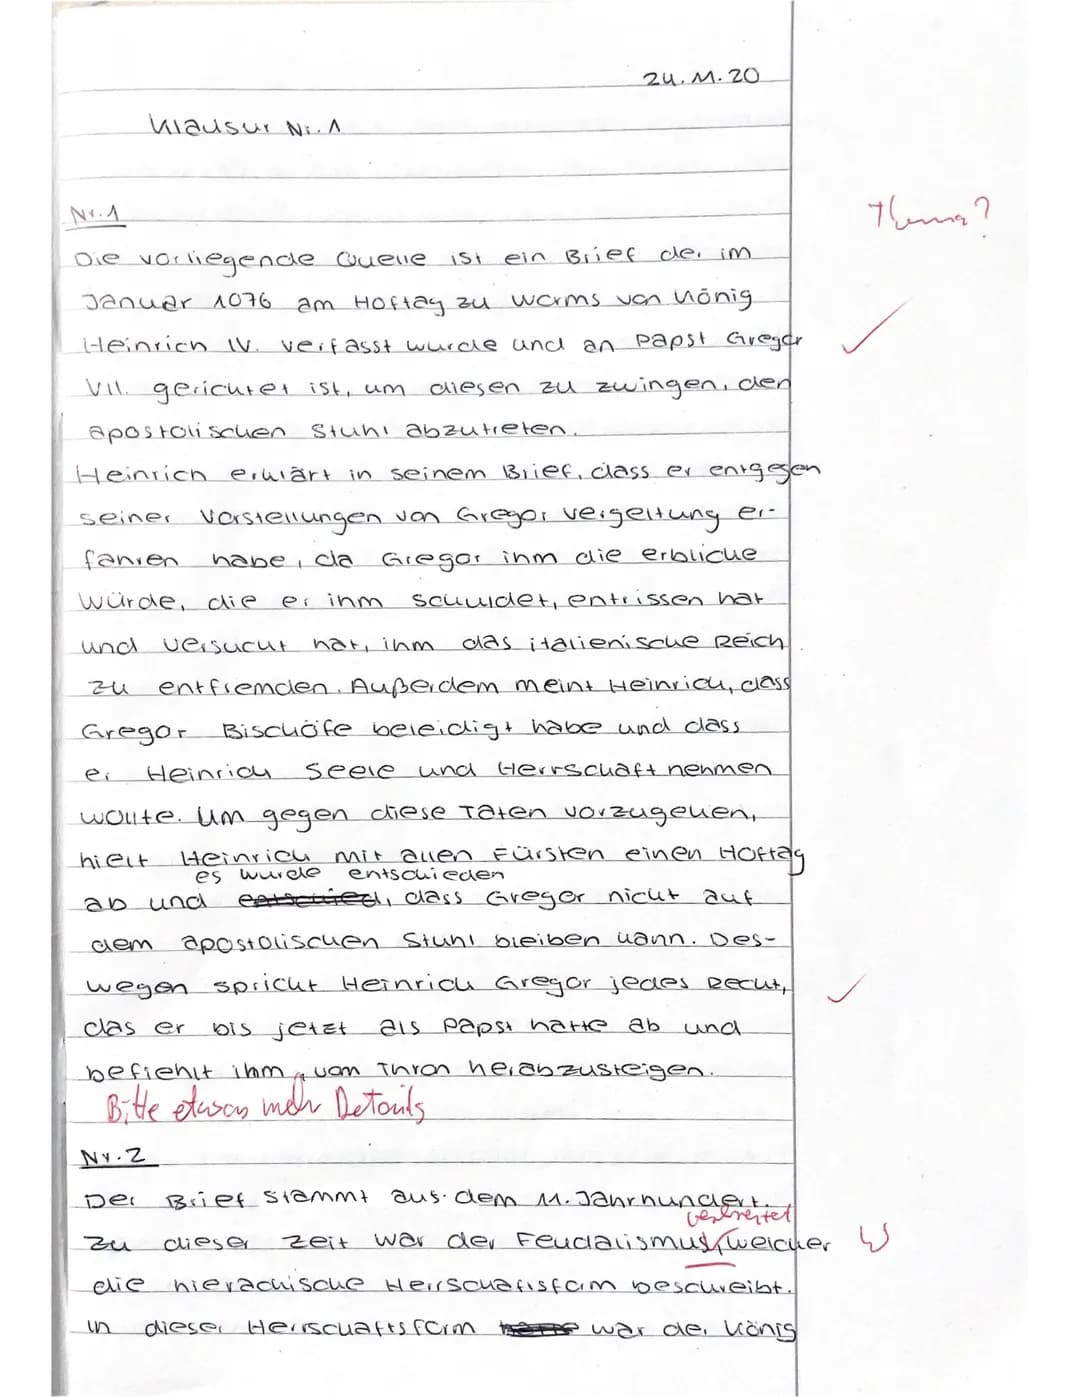 24.11.20
Klausur Nr. 1
Nr. 1
Thema?
Die vorliegende Quelle ist ein Brief der im
Januar 1076 am Hoftag zu Worms von König
Heinrich IV. verfasst wurde und an Papst Gregor
VII. gerichtet ist, um diesen zu zwingen, den
apostolischen Stuhl abzutreten.
Heinrich erklärt in seinem Brief, dass er entgegen
seiner Vorstellungen von Gregor Vergeltung er-
fahren habe, da Gregor ihm die erbliche
Würde, die er ihm schuldet, entrissen hat
und versucht hat, ihm das italienische Reich
zu entfremden. Außerdem meint Heinrich, dass
Gregor Bischöfe beleidigt habe und dass
er Heinrich Seele und Herrschaft nehmen
wollte. Um gegen diese Taten vorzugehen,
hielt Heinrich mit allen Fürsten einen Hoftag
es wurde entschieden
ab und entschied, dass Gregor nicht auf
dem apostolischen Stuhl bleiben kann. Des-
wegen spricht Heinrich Gregor jedes Recht,
das er bis jetzt als Papst hatte ab und
befiehlt ihm, vom Thron herabzusteigen.
Bitte etwas mehr Details
Nr. 2
Der Brief stammt aus dem 11. Jahrhundert.
verbreitet
Zu dieser Zeit war der Feudalismus, welcher W
die hierachische Herrschaftsform beschreibt.
In dieser Herrschaftsform war der König